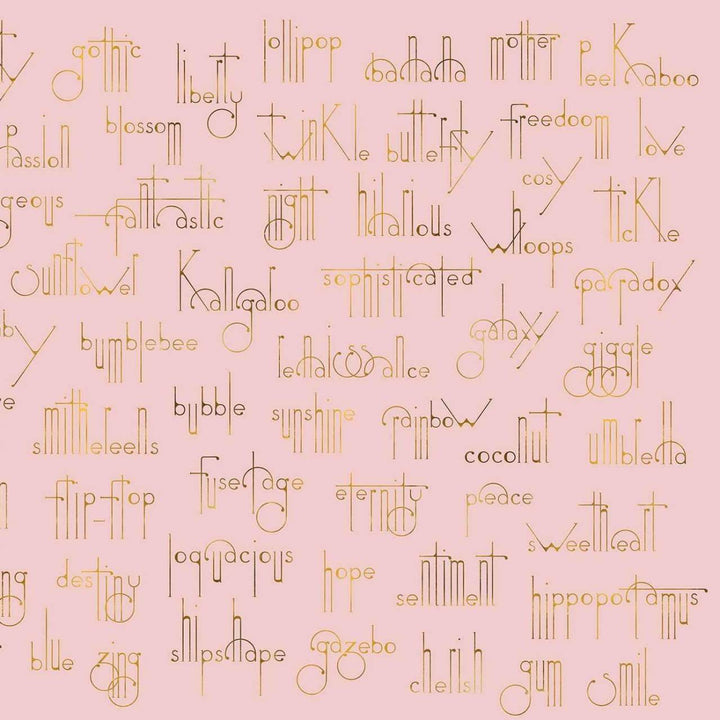 gothic liberty lollipop banana mother peekaboo
passion blossom twinkle butterfly freedom love
geous fantastic night hilarious cosy whoops tickle
sunflower kangaroo sophisticated paradox
by bumblebee renaissance galaxy giggle
smithereens bubble sunshine rainbow coconut umbrella
flip-flop fuselage eternity peace sweetheart
ng destiny loquacious hope sentiment hippopotamus
blue zing shipshape gazebo cherish gum smile